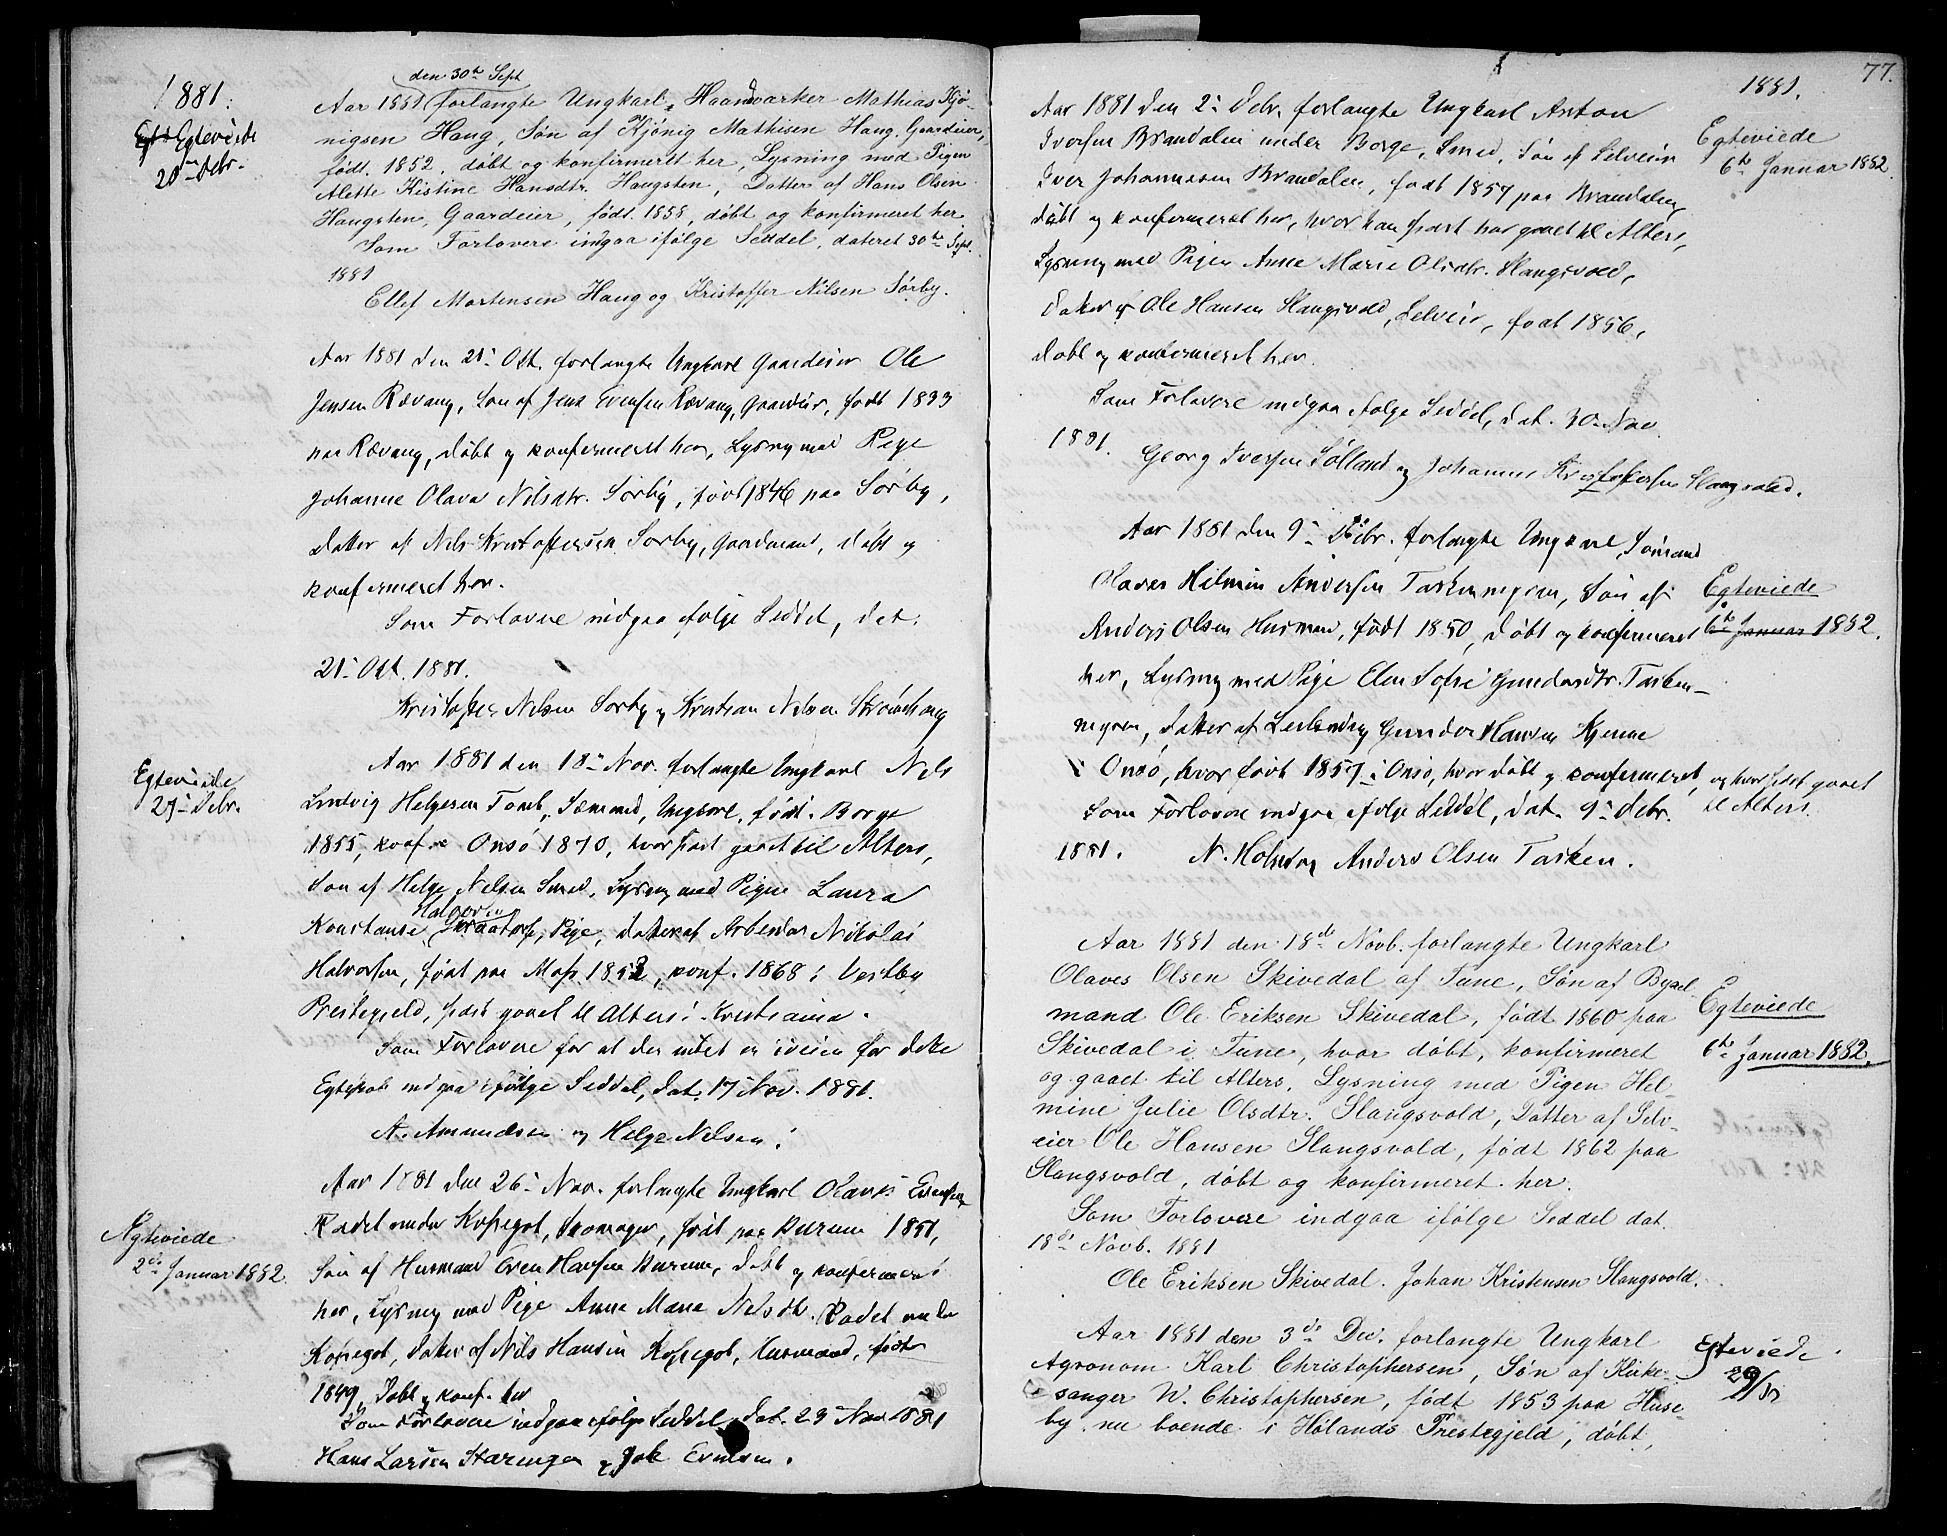 1881.
Egteviede
20de Debr.
den 30te Sept
Aar 1881 forlangte Ungkarl, Haandværker Mathias Kjø-
nigsen Haug, Søn af Kjönig Mathisen Haug, Gaardeier,
født 1852, døbt og konfirmeret her, Lysning med Pigen
Alette Kistine Hansdtr. Haugsten, Datter af Hans Olsen
Haugsten, Gaardeier, født 1858, døbt og konfirmeret her.
Som Forlovere indgaa ifølge Seddel, dateret 30te Sept.
1881
Ellef Mortensen Haug og Kristoffer Nilsen Sørby.
Aar 1881 den 21de Okt. forlangte Ungkarl Gaardeier Ole
Jensen Rævaug, Søn af Jens Evensen Rævaug, Gaardeier, født 1833
paa Rævaug, døbt og konfirmeret her, Lysning med Pige
Johanne Olava Nilsdtr. Sørby, født 1846 paa Sørby,
Datter af Nils Kristoffersen Sørby, Gaardmand, døbt og
konfirmeret her.
Som Forlovere indgaa ifølge Seddel, dat.
21de Okt. 1881.
Kristoffer Nilsen Sørby og Kristian Nilsen
Egteviede
27de Debr.
Aar 1881 den 18de Nov. forlangte Ungkarl Nils
Ludvig Helgesen Tomb, Sømand, Ungkarl, født i Borge
1855, konf. Onsø 1870, hvor sidst gaaet til Alters,
Søn af Helge Nilsen Smed, Lysning med Pigen Laura
Halvorsen
Konstanse, Pige, Datter af Arbeider Nikolai
Halvorsen, født paa Moss 1852, konf. 1868 i Vestby
Prestegjeld, sidst gaaet til Alters i Kristiania.
Som Forlovere for at der intet er iveien for dette
Egteskab indgaa ifølge Seddel, dat. 17 Nov. 1881.
A. Amundsen og Helge Nilsen.
Aar 1881 den 26de Nov. forlangte Ungkarl Olaves Evensen
Rødet under Kosegot, Skomager, født paa Burum 1851,
Søn af Husmand Even Hansen Burum, døbt og konfirmeret
her, Lysning med Pige Anne Marie Nilsdtr. Rødet under
Kosegot, Datter af Nils Hansen Kosegot, Husmand, født
1849, Døbt og konf. her
Som Forlovere indgaa ifølge Seddel, dat. 23 Nov 1881
Hans Larsen Staringen og Even
Egteviede
2den Januar 1882.
77.
1881.
Aar 1881 den 2de Debr. forlangte Ungkarl Anton
Iversen Brandalen under Borge, Smed, Søn af Selveier
Iver Johannessen Brandalen, født 1857 paa Brandalen
døbt og konfirmeret her, hvor han sidst har gaaet til Alters,
Lysning med Pigen Anne Marie Olsdtr. Slangsvold,
Datter af Ole Hansen Slangsvold, Selveier, født 1856,
døbt og konfirmeret her.
Som Forlovere indgaa ifølge Seddel, dat. 30. Nov.
1881.
Georg Iversen Sølland og Johannes Kristoffersen Slangsvold.
Egteviede
6te Januar 1882.
Aar 1881 den 9de Debr. forlangte Ungkarl, Sømand
Olaves Hilmin Andersen Taskenengen, Søn af
Anders Olsen Husmand, født 1850, døbt og konfirmeret
her, Lysning med Pige Elen Sofie Gundersdtr. Tasken-
engen, Datter af Leilænding Gunder Hansen Kjenne
i Onsø, hvor født 1857 i Onsø, hvor døbt og konfirmeret, og hvor sidst gaaet
til Alters.
Som Forlovere indgaa ifølge Seddel, dat. 9de Debr.
1881.
N. Holm og Anders Olsen Tasken.
Egteviede
6te Januar 1882.
Aar 1881 den 18de Novb. forlangte Ungkarl
Olaves Olsen Skivedal af Tune, Søn af Byxel-
mand Ole Eriksen Skivedal, født 1860 paa
Skivedal i Tune, hvor døbt, konfirmeret
og gaaet til Alters. Lysning med Pigen Hel-
mine Julie Olsdtr. Slangsvold, Datter af Selv-
eier Ole Hansen Slangsvold, født 1862 paa
Slangsvold, døbt og konfirmeret her.
Som Forlovere indgaa ifølge Seddel dat.
18de Novb. 1881
Ole Eriksen Skivedal. Johan Kristensen Slangsvold.
Egteviede
6te Januar 1882.
Aar 1881 den 3de Dec. forlangte Ungkarl
Agronom Karl Christophersen, Søn af Kirke-
sanger W. Christophersen, født 1853 paa Huse-
by, nu boende i Hølands Prestegjeld, døbt,
Egteviede
29/12